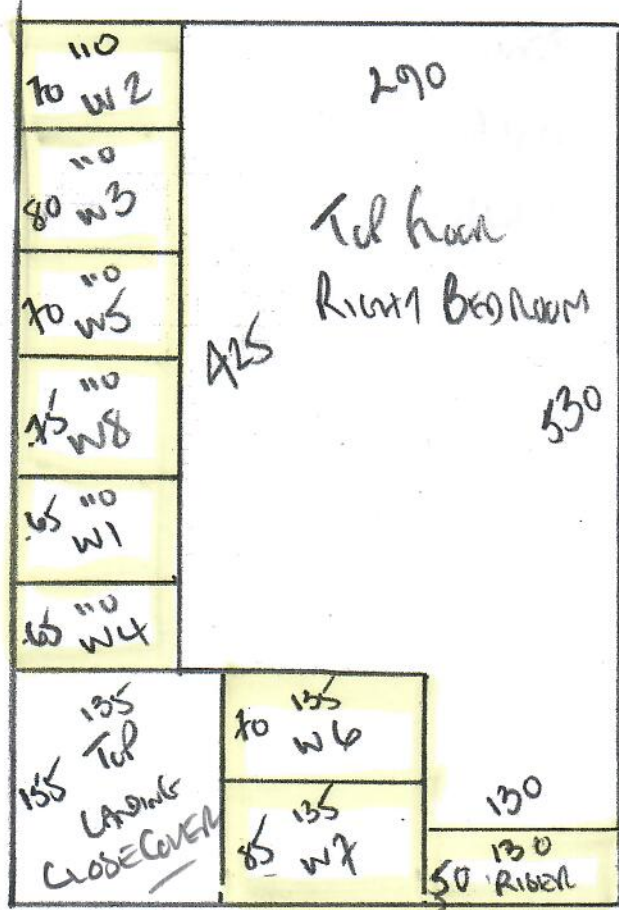 110
70 W2
110
80 W3
110
70 W5
110
75 W8
110
65 W1
110
65 W4
290
TOP FLOOR
RIGHT BEDROOM
425
530
135
155 TOP
LANDING
CLOSE COVER
135
70 W6
135
85 W7
130
130
50 RISER